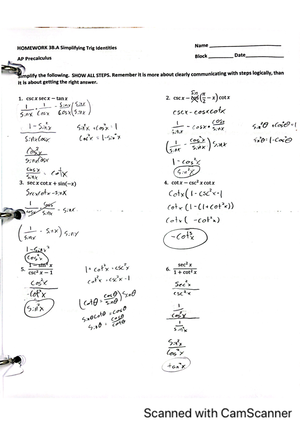 HOMEWORK 3B.A Simplifying Trig Identities
Name
AP Precalculus
Block
Date
Simplify the following. SHOW ALL STEPS. Remember it is more about clearly communicating with steps logically, than
it is about getting the right answer.
1. csc x sec x − tan x
1/sinx · 1/cosx − sinx/cosx (sinx/sinx)
1 − sin²x / sinxcosx
sin²x + cos²x = 1
cos²x = 1 − sin²x
cos²x / sinxcosx
cosx / sinx = cot x
2. csc x − cos(π/2 − x) cot x
cscx − cosxcotx
1/sinx − cosx · cosx/sinx
sin²θ + cos²θ = 1
sin²θ = 1 − cos²θ
1 − cos²x
sin²x
3. sec x cot x + sin(−x)
secxcotx − sinx
− sinx
(1/sinx − sinx) sinx
1 − sin²x
cos²x
4. cot x − csc² x cot x
cotx (1 − csc²x)
cotx (1 − (1 + cot²x))
cotx ( − cot²x)
− cot³x
5. 1 − sin² x / csc² x − 1
cos²x / cot²x
sin²x
1 + cot²x = csc²x
cot²x = csc²x − 1
(cotθ = cosθ/sinθ) sinθ
sinθcotθ = cosθ
sinθ = cosθ/cotθ
6. sec² x / 1 + cot² x
sec²x / csc²x
1/cos²x / 1/sin²x
sin²x / cos²x
tan²x
Scanned with CamScanner